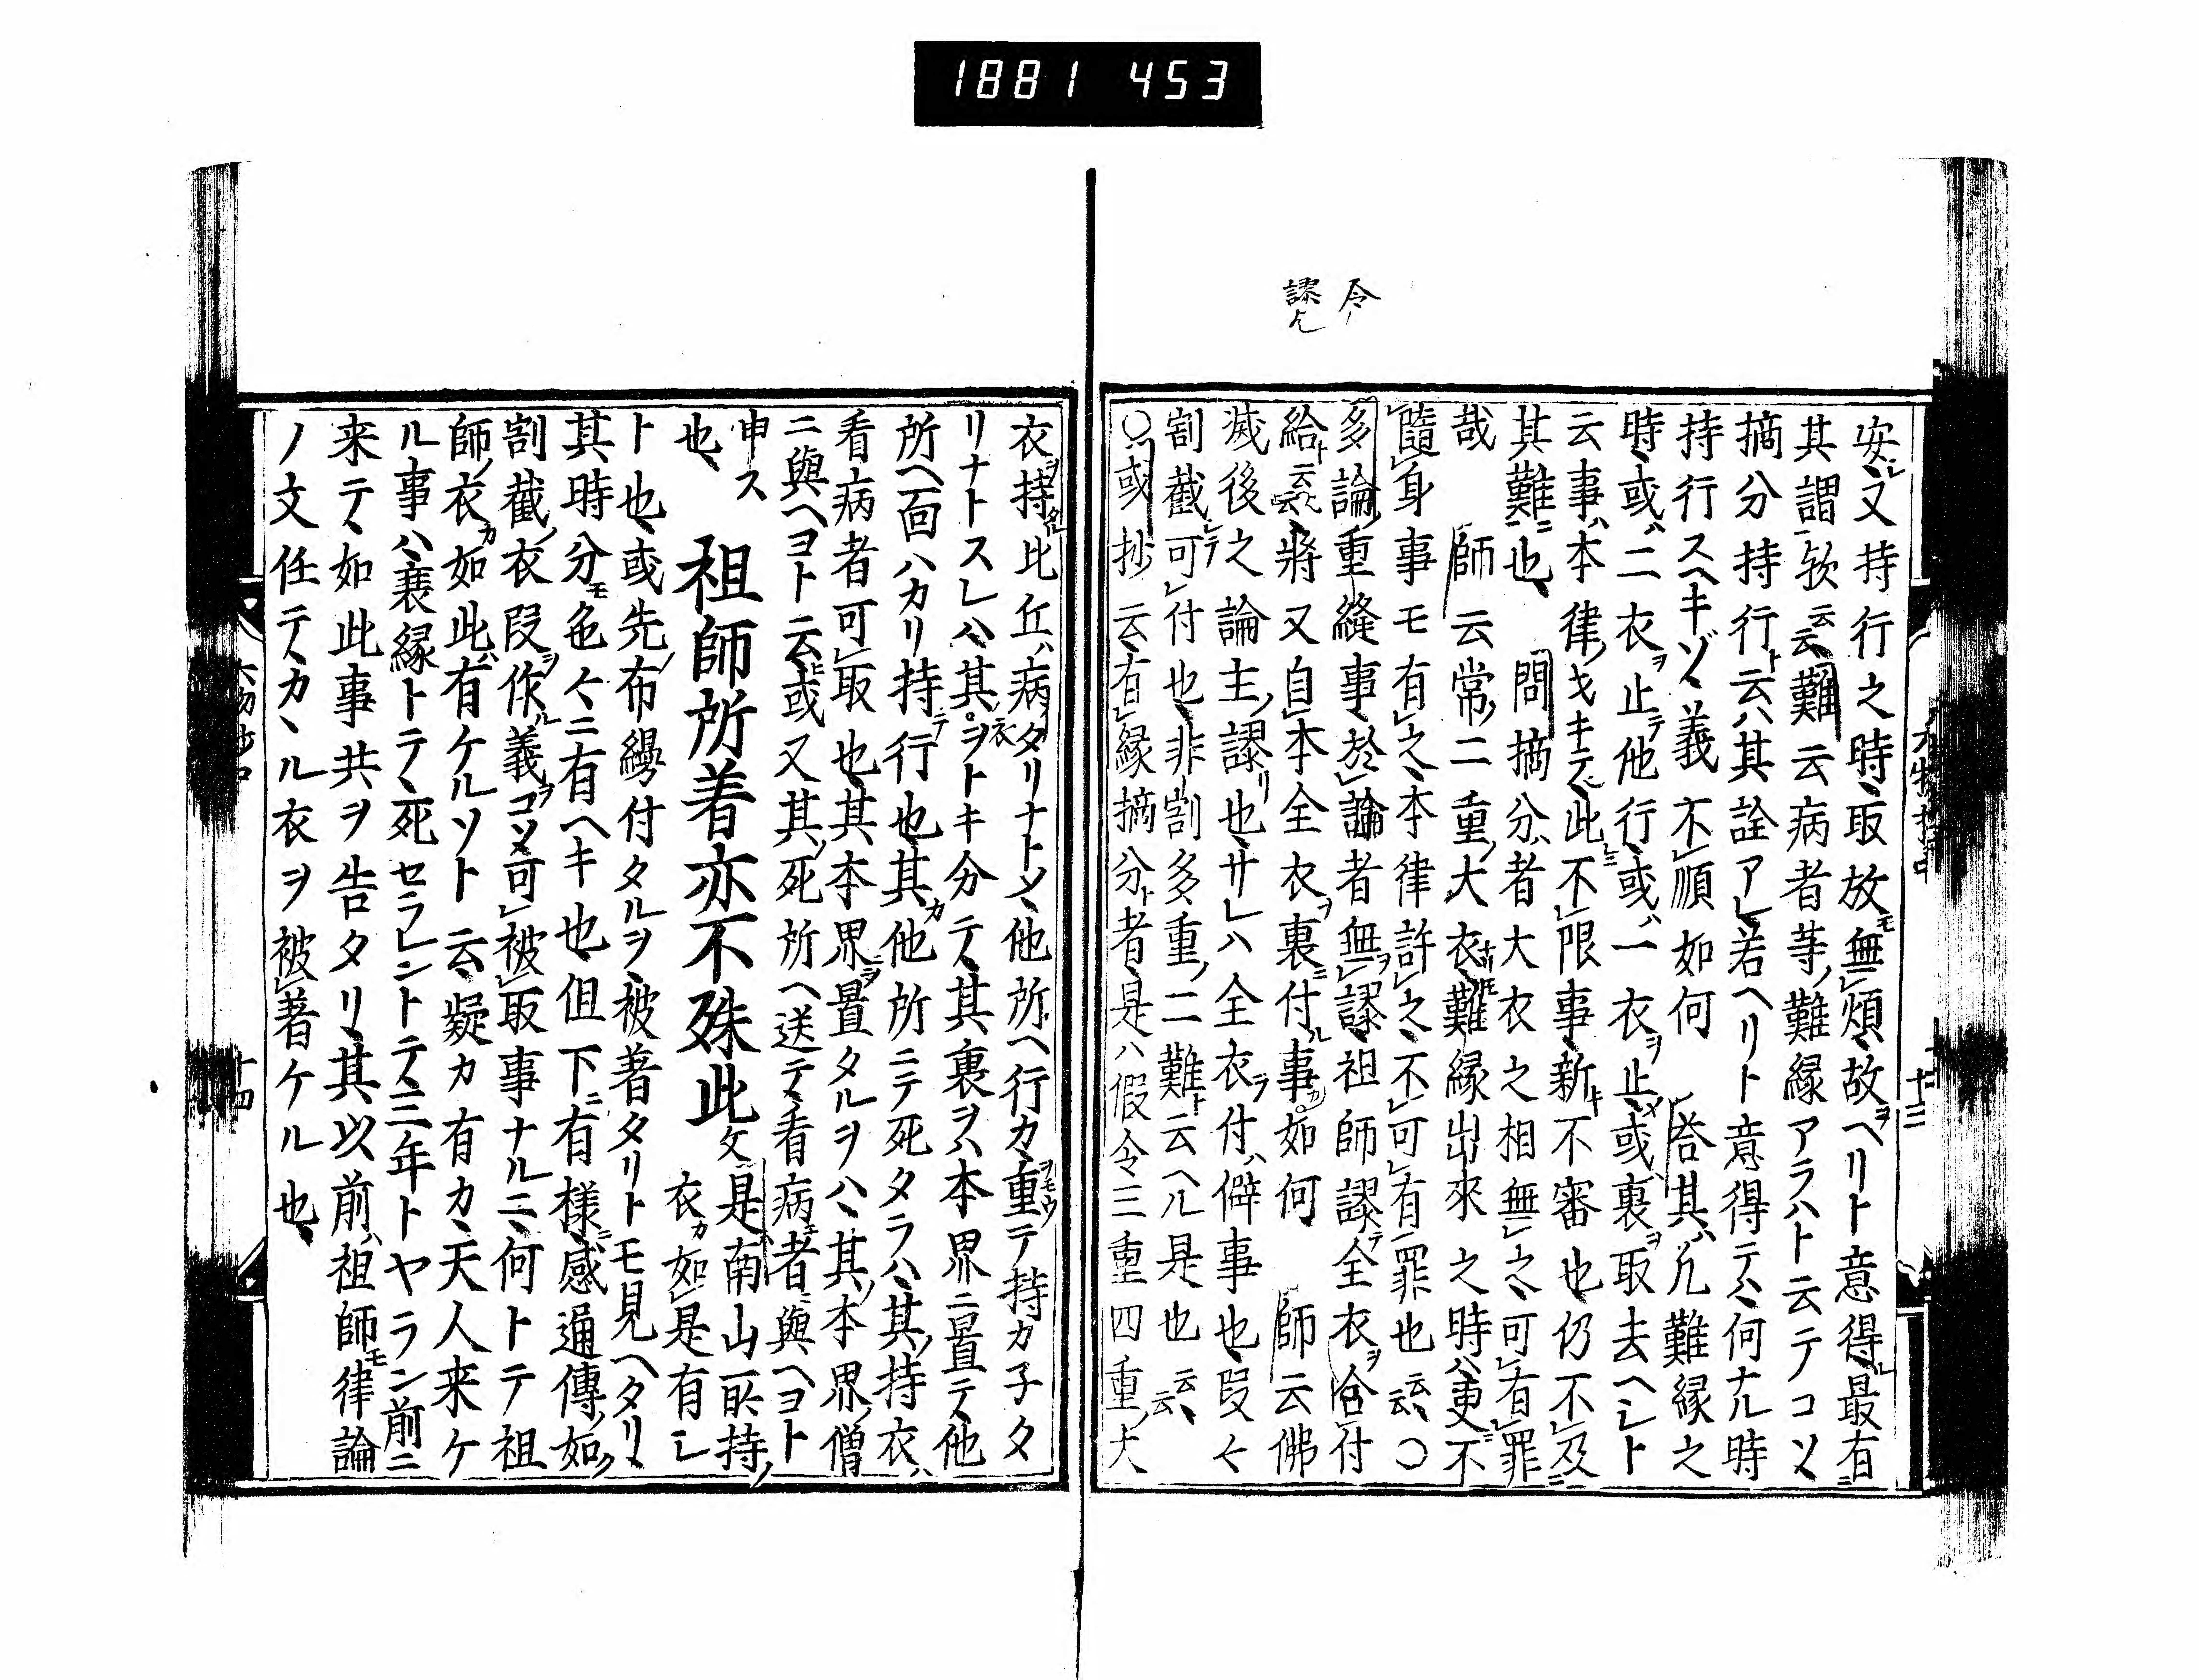 1881 453
令
謬
安又持行之時取放無煩故ヘリト意得最有
其謂欤云云難云病者等難縁アラハト云テコソ
摘分持行云ハ其詮アレ若ヘリト意得テハ何ナル時
持行スヘキソ義不順如何 答其凡難縁之
時或二衣止他行或一衣止或裏取去ヘシト
云事本律此不限事新不審也仍不及
其難也 問摘分者大衣之相無之可有罪
哉 師云常二重大衣難縁出來之時更不
隨身事モ有之本律許之不可有罪也云云○
多論重縫事於論者無謬祖師謬全衣合付
給云云將又自本全衣裏付事如何 師云佛
滅後之論主謬也サレハ全衣付僻事也段々
割截可付也非割多重二難云ヘル是也云云
○或抄云有縁摘分者是ハ假令三重四重大
十三
衣持比丘病タリナトメ他所ヘ行カ重テ持カ子タ
リナトスレハ其ヲトキ分テ其裏ヲハ本界ニ置テ他
所ヘ面ハカリ持行也其他所ニテ死タラハ其持衣
看病者可取也其本界置タルヲハ其本界僧
ニ與ヘヨト云或又其死所ヘ送テ看病者與ヘヨト
申ス 祖師所着亦不殊此文 是南山所持
也 衣如是有シ
ト也或先布縵付タルヲ被著タリトモ見ヘタリ
其時分色々ニ有ヘキ也但下有樣感通傳如
割截衣段作義コソ可被取事ナルニ何トテ祖
師衣如此有ケルソト云疑カ有カ天人来ケ
ル事ハ衰縁トテ死セラレントテ三年トヤラン前ニ
来テ如此事共ヲ告タリ其以前祖師律論
ノ文任テカヽル衣ヲ被著ケル也
十四